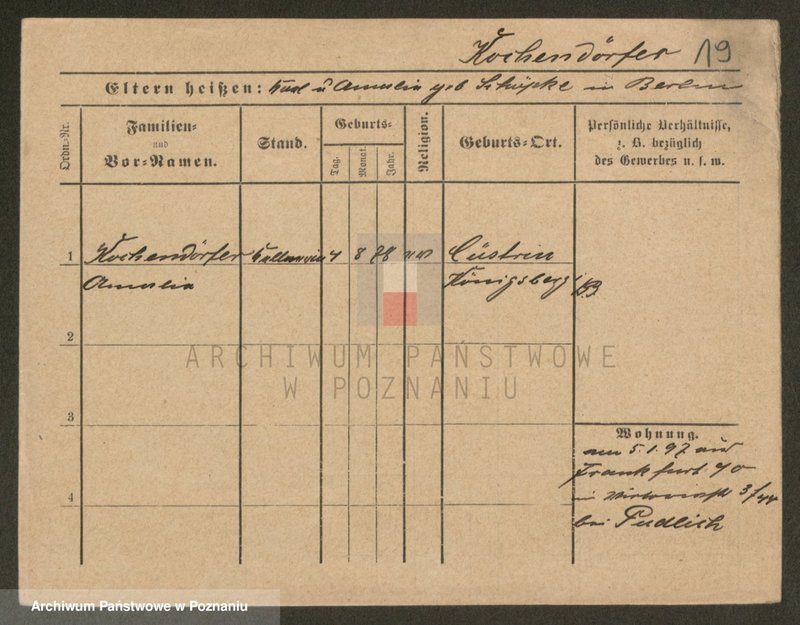 Kochendörfer 19
Eltern heißen: Karl u Amalia geb Schöpke in Berlin
Ordn.-Nr.
Familien-
und
Vor-Namen.
Stand.
Geburts-
Tag.
Monat.
Jahr.
Religion.
Geburts-Ort.
Persönliche Verhältnisse,
z. B. bezüglich
des Gewerbes u. s. w.
1 Kochendörfer Kellnerin 4 8 78 Cüstrin
Amalia Königsberg
2
3
4
Wohnung.
am 5.1.97 aus
Frankfurt
in 3/44
bei Pudlich
ARCHIWUM PAŃSTWOWE
W POZNANIU
Archiwum Państwowe w Poznaniu